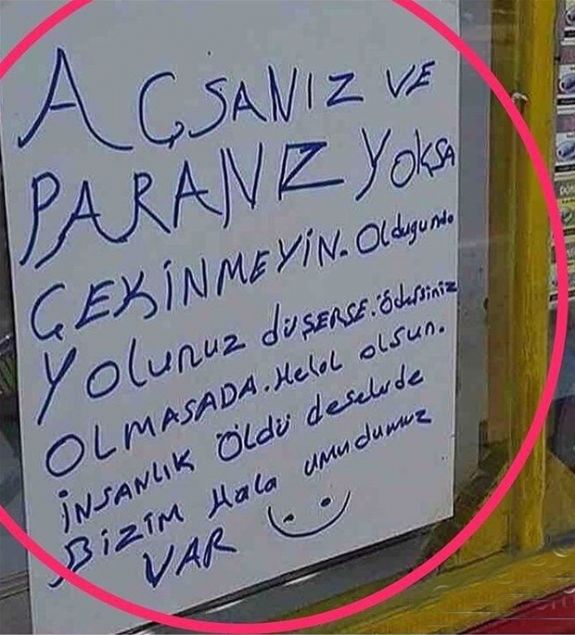 AÇSANIZ VE
PARANIZ YOKSA
ÇEKİNMEYİN. Olduğunda
Yolunuz düŞERSE. ödersiniz
OLMASADA. Helal olsun.
İNSANLIK Öldü deselerde
BİZİM Hala umudumuz
VAR